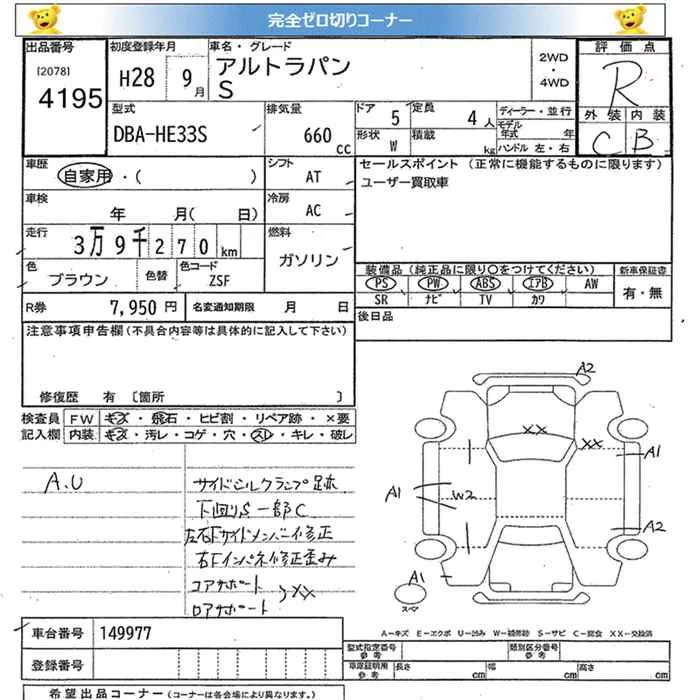 完全ゼロ切りコーナー
出品番号
[2078]
4195
初度登録年月
H28 9月
車名・グレード
アルトラパン
S
2WD
・
4WD
評価点
R
外装 内装
C B
型式
DBA-HE33S
排気量
660 cc
ドア 5
定員 4人
形状 W
積載 kg
ディーラー・並行
モデル年式 年
ハンドル 左・右
車歴
自家用・( )
シフト
AT
セールスポイント (正常に機能するものに限ります)
ユーザー買取車
車検
年 月( 日)
冷房
AC
走行
3万9千270km
燃料
ガソリン
色
ブラウン
色替
色コード
ZSF
装備品 (純正品に限り○をつけてください)
PS PW ABS エアB AW
SR ナビ TV カワ
新車保証書
有・無
R券
7,950 円
名変通知期限 月 日
後日品
注意事項申告欄 (不具合内容等は具体的に記入して下さい)
修復歴 有 [箇所 ]
検査員記入欄
FW キズ・飛石・ヒビ割・リペア跡・×要
内装 キズ・汚レ・コゲ・穴・スレ・キレ・破レ
A.U
サイドシルクランプ足跡
下回りS 一部C
左右Fサイドメンバー修正
右Fインパネ修正歪み
コアサポート
ロアサポート
>XX
A2
XX
XX
A1
A1
W2
A2
A1
スペア
A-キズ E-エクボ U-凹み W-補修跡 S-サビ C-腐食 XX-交換済
車台番号
149977
登録番号
型式指定番号
参考
類別区分番号
参考
車庫証明用
参考
長さ cm
幅 cm
高さ cm
希望出品コーナー (コーナーは各会場により異なります。)